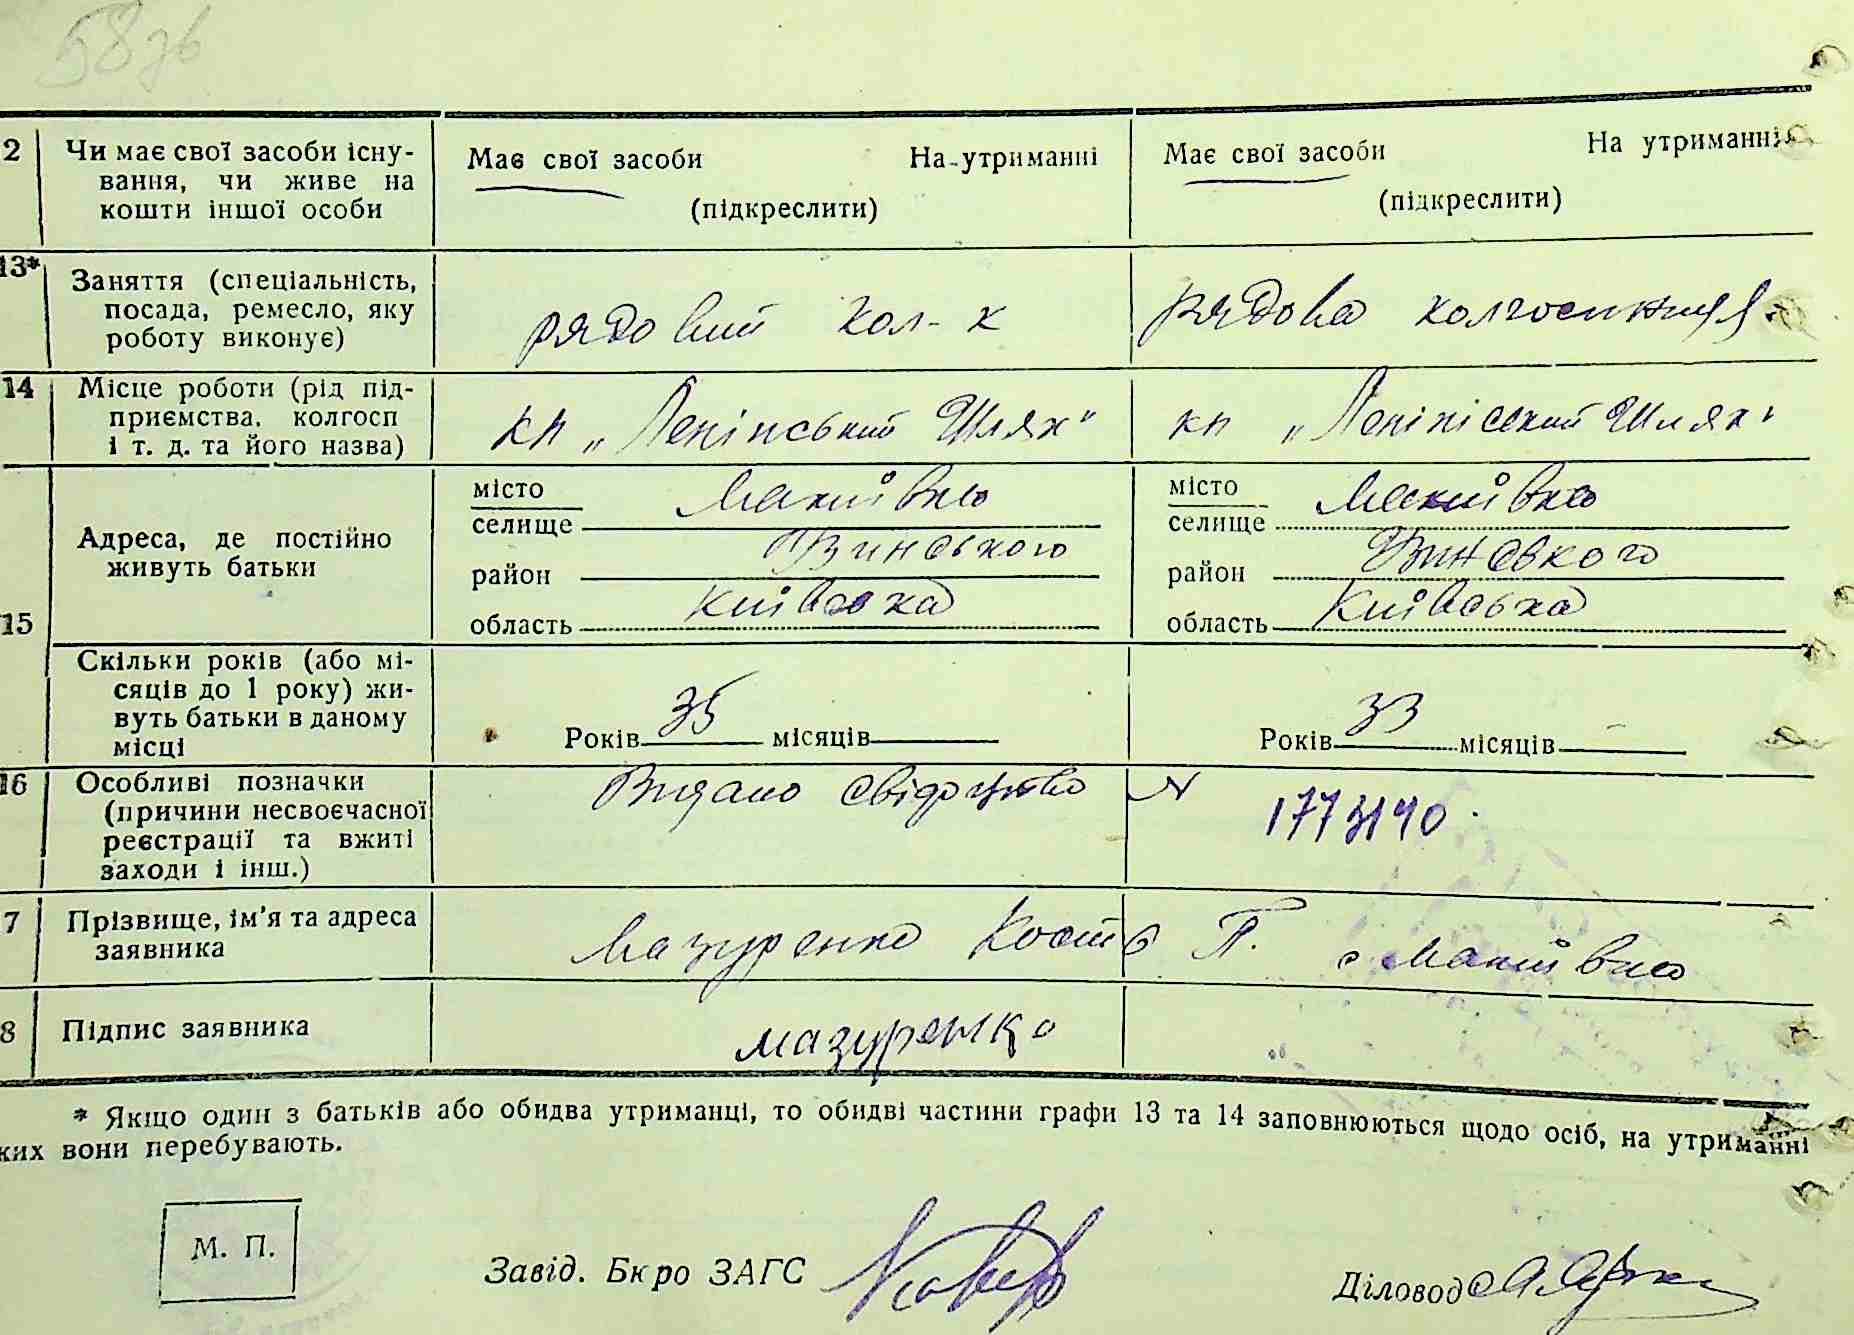 58 зв
2 Чи має свої засоби існу-
вання, чи живе на
кошти іншої особи
Має свої засоби На утриманні
(підкреслити)
Має свої засоби На утриманні
(підкреслити)
13* Заняття (спеціальність,
посада, ремесло, яку
роботу виконує)
рядовий кол-к
рядова колгоспниця
14 Місце роботи (рід під-
приємства, колгосп
і т. д. та його назва)
кп „Ленінський Шлях"
кп „Лепінісский Шлях"
15 Адреса, де постійно
живуть батьки
місто
селище Макиївка
район
область Київська
місто
селище Макиївка
район
область Київська
Скільки років (або мі-
сяців до 1 року) жи-
вуть батьки в даному
місці
Років 35 місяців
Років 33 місяців
16 Особливі позначки
(причини несвоєчасної
реєстрації та вжиті
заходи і інш.)
Видано свідоцтво N
7 Прізвище, ім'я та адреса
заявника
Мазуренко Костя П. с Макиївка
8 Підпис заявника
мазуренко
* Якщо один з батьків або обидва утриманці, то обидві частини графи 13 та 14 заповнюються щодо осіб, на утриманні
ких вони перебувають.
М. П.
Завід. Бюро ЗАГС
Діловод